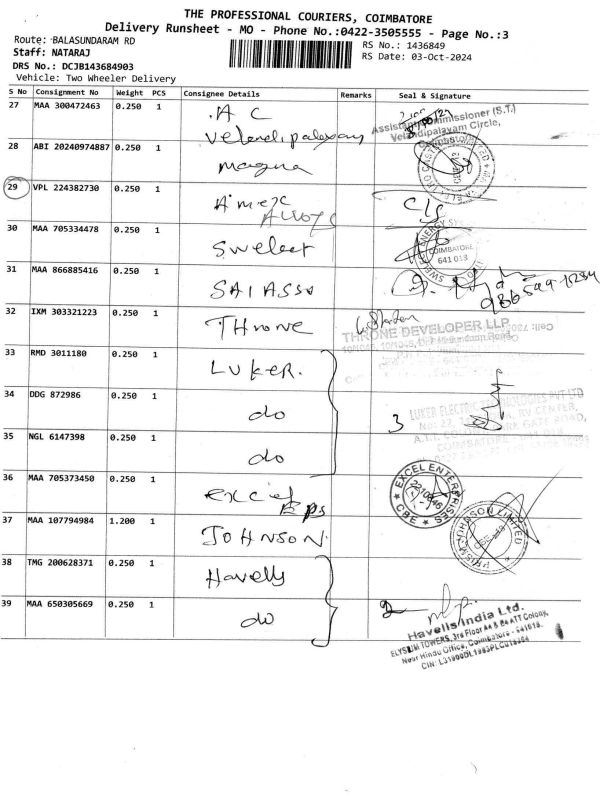 THE PROFESSIONAL COURIERS, COIMBATORE
Delivery Runsheet - MO - Phone No.:0422-3505555 - Page No.:3
Route: BALASUNDARAM RD
RS No.: 1436849
Staff: NATARAJ
RS Date: 03-Oct-2024
DRS No.: DCJB143684903
Vehicle: Two Wheeler Delivery
S No Consignment No Weight PCS Consignee Details Remarks Seal & Signature
27 MAA 300472463 0.250 1 A C
Velandipalayam
Assistant Commissioner (S.T.)
Velandipalayam Circle,
Coimbatore
28 ABI 20240974887 0.250 1 magna
29 VPL 224382730 0.250 1 Amex
Alloys
30 MAA 705334478 0.250 1 Swelect
SWELECT ENERGY SY
COIMBATORE
641 013
31 MAA 866885416 0.250 1 SAI ASSO
32 IXM 303321223 0.250 1 Throne
THRONE DEVELOPER LLP
33 RMD 3011180 0.250 1 LUKER.
34 DDG 872986 0.250 1 do 3
LUKER ELECTRIC TECHNOLOGIES PVT LTD
35 NGL 6147398 0.250 1 do
36 MAA 705373450 0.250 1 Excel
EXCEL ENTERPRISES
CBE
37 MAA 107794984 1.200 1 JOHNSON
PRISM JOHNSON LIMITED
38 TMG 200628371 0.250 1 Havells
39 MAA 650305669 0.250 1 do 2
Havells India Ltd.
ELYSIUM TOWERS, 3rd Floor
Near Hindu Office, Coimbatore - 641018.